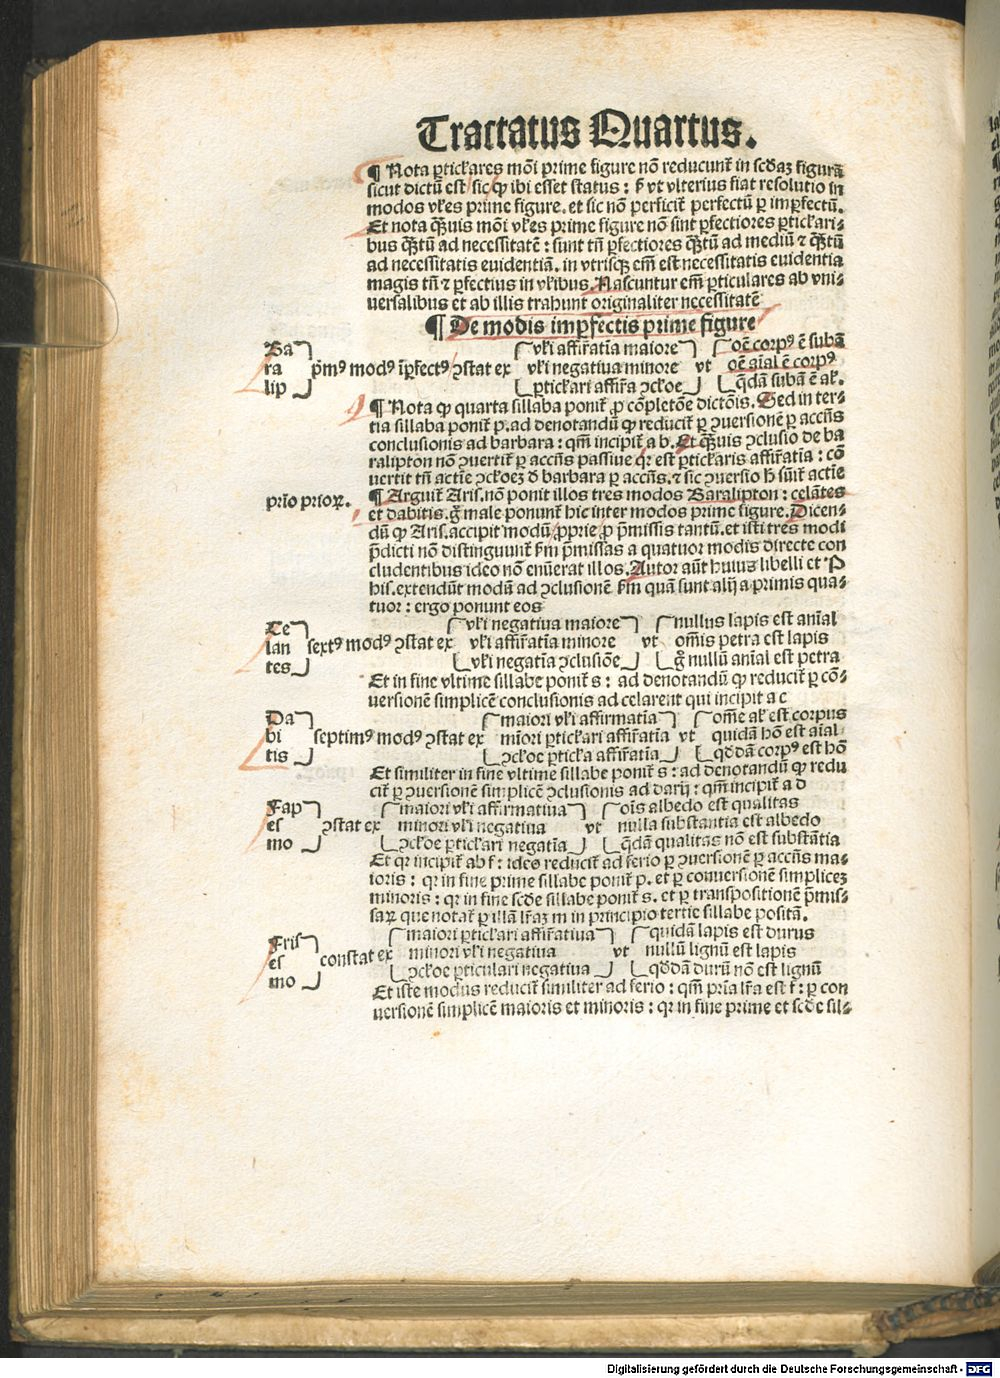 Tractatus Quartus.
¶ Nota ꝑtic̄kares mōi prime figure nō reducunt̄ in scd̄aꝫ figurā
sicut dictū est sic ꝙ ibi esset status: s̄ vt vlterius fiat resolutio in
modos vl̄es prime figure. et sic nō perficit̄ perfectū ꝑ imꝑfectū.
Et nota qᷓꝫuis mōi vl̄es prime figure nō sint ꝑfectiores ꝑtickari-
bus qᷓꝫtū ad necessitatē: sunt tn̄ ꝑfectiores qᷓꝫtū ad mediū ⁊ qᷓꝫtū
ad necessitatis euidentiā. in vtrisqꝫ em̄ est necessitatis euidentia
magis tn̄ ⁊ ꝑfectius in vl̄ibus. Nascuntur em̄ ꝑticulares ab vni-
uersalibus et ab illis trahunt originaliter necessitatē
¶ De modis imꝑfectis prime figure
Ba
ra
lip
pͥmꝰ modꝰ īꝑfectꝰ ꝯstat ex
vl̄i affirat̄ia maiore
vl̄i negatiua minore
ꝑtickari affir̄a ꝯc̄koe
vt
oē corpꝰ ē subā
oē aīal ē corpꝰ
qd̄ā subā ē al̄.
¶ Nota ꝙ quarta sillaba ponit̄ ꝓ cōpletōe dictōis. Sed in ter-
tia sillaba ponit̄ p. ad denotandū ꝙ reducit̄ ꝑ ꝯuersionē ꝑ accn̄s
conclusionis ad barbara: qm̄ incipit̄ a b. Et qᷓꝫuis ꝯclusio de ba
ralipton nō ꝯuertit̄ ꝑ accn̄s passiue qꝛ est ꝑtickaris affir̄atia: cō
uertit tn̄ actīe ꝯc̄koeꝫ d̄ barbara ꝑ accn̄s. ⁊ sic ꝯuersio h̄ sūit̄ actīe
prīo prioꝝ.
¶ Arguit̄ Aris. nō ponit illos tres modos Baralipton: celātes
et dabitis. gͦ male ponunt̄ hic inter modos prime figure. Dicen-
dū ꝙ Aris. accipit modū ꝓprie ꝓ pͤmissis tantū. et isti tres modi
p̄dicti nō distinguunt̄ ẜm p̄missas a quatuor modis directe con
cludentibus ideo nō enūerat illos. Autor aūt huius libelli et P
his. extendūt modū ad ꝯclusionē ẜm quā sunt alij a primis qua-
tuor: ergo ponunt eos
Ce
lan
tes
sextꝰ modꝰ ꝯstat ex
vl̄i negatiua maiore
vl̄i affir̄atīa minore
vl̄i negatīa ꝯclusiōe
vt
nullus lapis est anīal
om̄is petra est lapis
gͦ nullū anīal est petra
Et in fine vltime sillabe ponit̄ s: ad denotandū ꝙ reducit̄ ꝑ cō-
uersionē simplicē conclusionis ad celarent qui incipit a c
Da
bi
tis
septimꝰ modꝰ ꝯstat ex
maiori vl̄i affirmatīa
mīori ꝑtickari affir̄atīa
ꝯc̄koe ꝑticka affir̄atīa
vt
om̄e al̄ est corpus
quidā hō est aīal
qd̄dā corpꝰ est hō
Et similiter in fine vltime sillabe ponit̄ s: ad denotandū ꝙ redu
cit̄ ꝑ ꝯuersionē simplicē ꝯclusionis ad darij: qm̄ incipit̄ a d
Fap
es
mo
ꝯstat ex
maiori vl̄i affirmatiua
minori vl̄i negatiua
ꝯc̄koe ꝑtickari negatīa
vt
oīs albedo est qualitas
nulla substantia est albedo
qd̄ā qualitas nō est substātia
Et qꝛ incipit̄ ab f: ideo reducit̄ ad ferio ꝑ ꝯuersionē ꝑ accn̄s ma-
ioris: qꝛ in fine prime sillabe ponit̄ p. et ꝑ conuersionē simpliceꝫ
minoris: qꝛ in fine scd̄e sillabe ponit̄ s. et ꝑ transpositionē p̄mis-
saꝝ que notat̄ ꝑ illā lr̄aꝫ m in principio tertie sillabe positā.
Fris
es
mo
constat ex
maiori ꝑtickari affir̄atiua
minori vl̄i negatiua
ꝯc̄koe ꝑticulari negatiua
vt
quidā lapis est durus
nullū lignū est lapis
qd̄dā durū nō est lignū
Et iste modus reducit̄ similiter ad ferio: qm̄ prīa lr̄a est f: ꝑ con
uersionē simplicē maioris et minoris: qꝛ in fine prime et scd̄e sil-
Digitalisierung gefördert durch die Deutsche Forschungsgemeinschaft - DFG